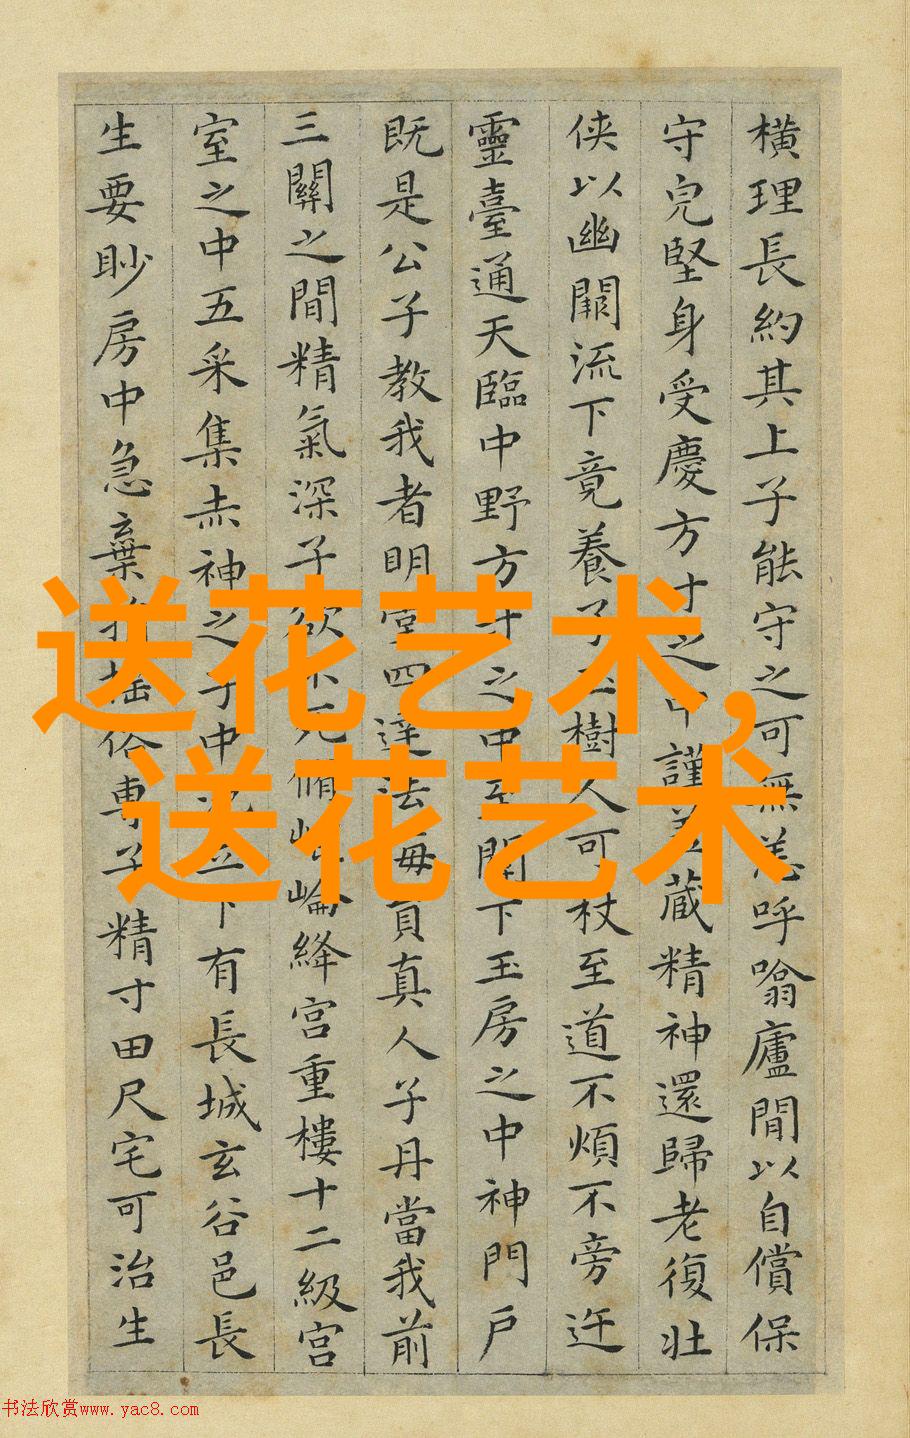 橫理長約其上子能守之可無恙呼噏廬閒以自償保
守皃堅身受慶方寸之中謹蓋藏精神還歸老復壯
侠以幽闕流下竟養子玉樹人可杖至道不煩不旁迕
靈臺通天臨中野方寸之中至關下玉房之中神門戶
既是公子教我者明堂四達法海員真人子丹當我前
三關之閒精氣深子欲不死脩崐崘絳宮重樓十二級宮
室之中五采集赤神之子中池立下有長城玄谷邑長
生要眇房中急棄捐搖俗專子精寸田尺宅可治生
送花艺术,
送花艺术
书法欣赏www.yac8.com